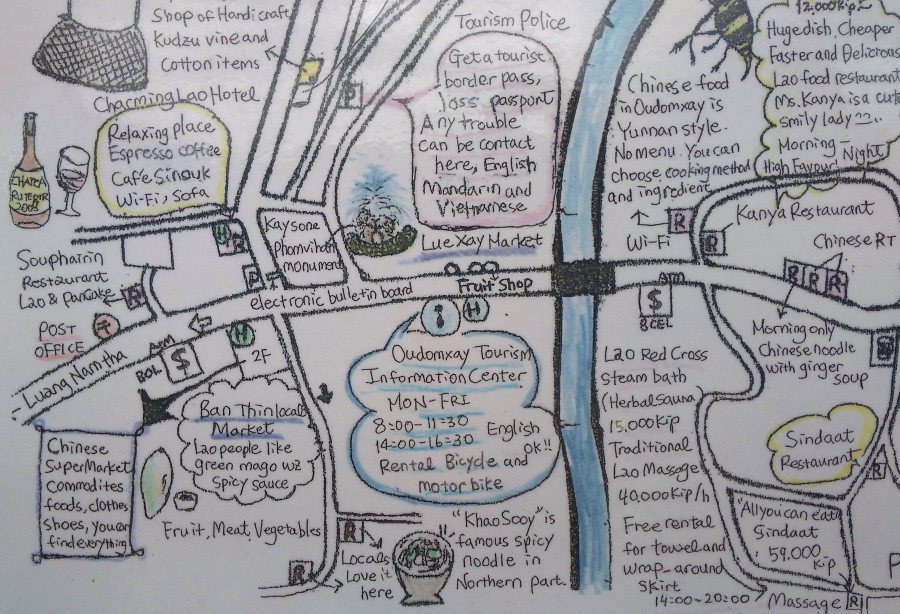 Shop of Handicraft
Kudzu vine and
Cotton items
Charming Lao Hotel
Relaxing place
Espresso coffee
Cafe Sinouk
Wi-Fi, Sofa
2003
Tourism Police
Get a tourist
border pass,
loss passport
Any trouble
can be contact
here, English
Mandarin and
Vietnamese
P
Chinese food
in Oudomxay is
Yunnan style.
No menu. You can
choose cooking method
and ingredient
Wi-Fi
R
12.000 kip
Huge dish, Cheaper
Faster and Delicious
Lao food restaurant
Ms. Kanya is a cute
smily lady
Morning - Night
High Favour
Kanya Restaurant
R
Chinese RT
R R R
Morning only
Chinese noodle
with ginger
soup
Kaysone
Phomvihan
monument
Lue Xay Market
Fruit Shop
electronic bulletin board
H
R
P
Souphairin
Restaurant
Lao & Pancake
R
POST
OFFICE
Luang Namtha
ATM
$
BOL
H
2F
Ban Thin local
Market
Lao people like
green mago wz
spicy sauce
Fruit, Meat, Vegetables
Chinese
SuperMarket
Commodites
foods, clothes
shoes, you can
find everything
i H
Oudomxay Tourism
Information Center
MON-FRI
8:00-11:30
14:00-16:30
English
ok!!
Rental Bicycle and
motor bike
R
Locals
Love it
here
R
"Khao Sooy" is
famous spicy
noodle in
Northern part.
ATM
$
BCEL
Lao Red Cross
Steam bath
(Herbal Sauna
15,000 Kip
Traditional
Lao Massage
40,000 Kip/h
Free rental
for towel and
wrap-around
skirt
14:00~20:00
Massage R
Sindaat
Restaurant
R
"All you can eat"
Sindaat
59,000
Kip
P